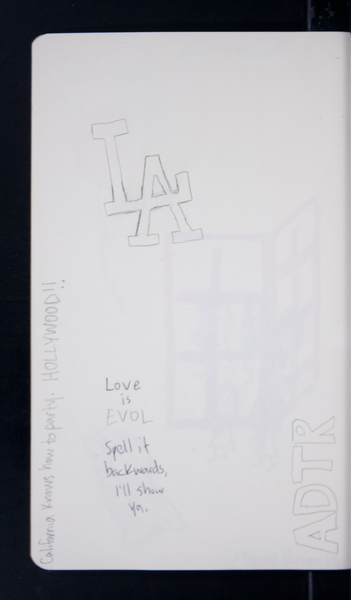 LA
California knows how to party. HOLLYWOOD!!
Love
is
EVOL
Spell it
backwards,
I'll show
ya.
ADTR